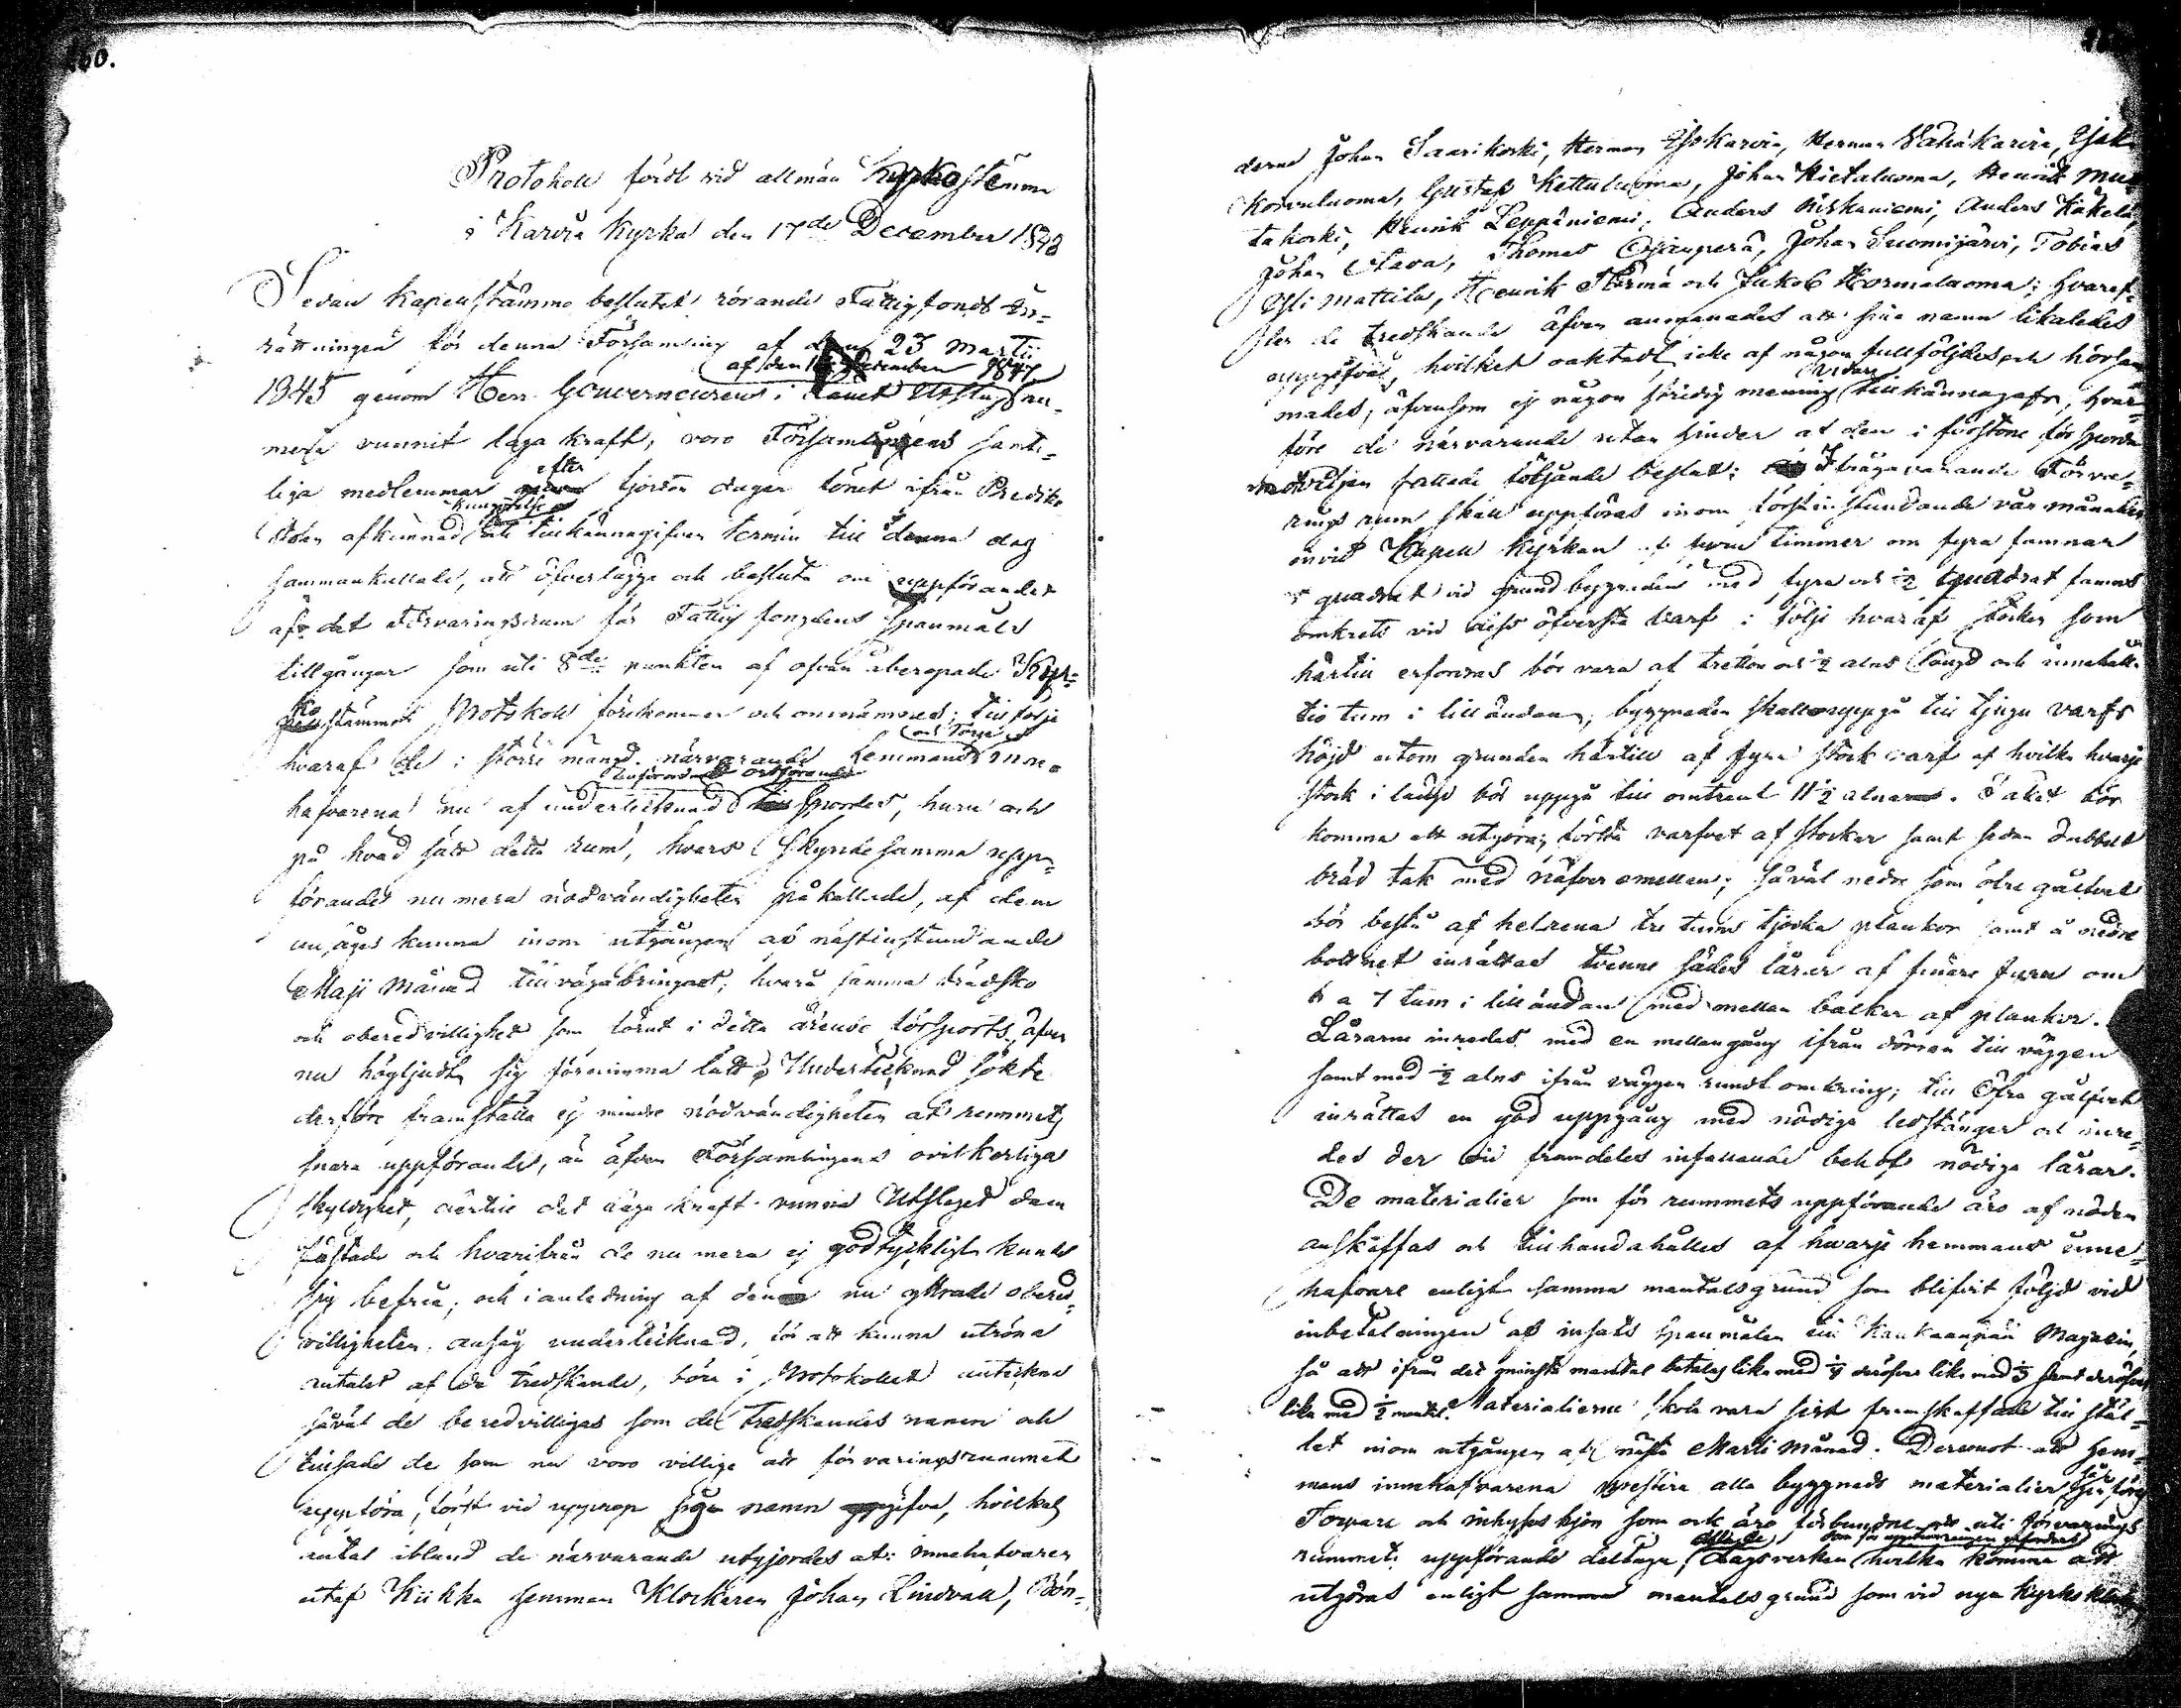 160.
Protokoll fördt vid allmän Kyrkostämma
i Karvia Kyrka den 17de December 1848
Sedan Kapellstämmo beslutet rörande Fattigfonds in-
rättningen för denna Församling af den 23 Martii
af den December 1847
1845 genom Herr Gouverneurens i Länet Utslag nu-
mera vunnit laga kraft, voro Församlingens samt-
liga medlemmar efter fjorton dagar förut ifrån Predik-
stolen afkunnad kungörelse tillkännagifven termin till denna dag
sammankallade, att öfverlägga och besluta om uppförandet
af det Förvaringsrum för Fattig fondens Spanmåls
tillgångar som uti 8de punkten af ofvan åberopade Kyr-
ko stämmo Protokoll förekommer och omnämnes; till följe
hvaraf de i större mängd närvarande hemmans inne-
hafvarena nu af undertecknad ordförande spordes, huru och
på hvad sätt detta rum, hvars skyndesamma upp-
förande numera nödvändigheten påkallade, af dem
kunna inom utgången af nästinstundande
Maji Månad tillvägabringas; hvara samma trädsko
och oberedvillighet som förut i detta ärende försports, äfven
nu högljudt sig förnimma lätt. Undertecknad sökte
derföre framställa ej mindre nödvändigheten af rummets
snara uppförande, än äfven Församlingens ovilkorliga
skyldighet, dertill det laga kraft vunna Utslaget dem
fästade och hvarifrån de numera ej godtyckligt kunde
sig befria; och i anledning af den nu yttrade obered-
villigheten, ansåg undertecknad, för att kunna utröna
antalet af de tredskande, böra i Protokollet anteckna
såväl de beredvilligas som de Tredskandes namn och
tillsade de som nu voro villige att förvaringsrummet
uppföra, först vid upprop sina namn uppgifva, hvilket
antal ibland de närvarande utgjordes af: innehafvaren
utaf Kiikka hemman Klockaren Johan Lindvall, Bön-
derne Johan Saarikoski, Herman Ylikarvia, Herman Vähäkarvia,
Korvaluoma, Gustaf Kettuluoma, Johan Hietaluoma, Henrik Mus-
takoski, Henrik Leppäniemi, Anders Kiskaniemi, Anders Käkelä,
Johan Otava, Thomas Ojanperä, Johan Suomijärvi, Tobias
Yli Mattila, Henrik Härmä och Jakob Hormaluoma; hvaref-
ter de tredskande äfven anmanades att sina namn likaledes
uppgifva, hvilket oaktadt icke af någon fullföljdes och hörsam-
mades, äfvensom ej någon skiljd mening vidare tillkännagafs, hvar-
före de närvarande utan hinder af den i förstone försporda
motviljan fattade följande beslut: Ifrågavarande Förva-
rings rum skall uppföras inom först instundande vår månader
invid Kapell Kyrkan af furu timmer om fyra famnar
i quadrat vid grund byggnaden med fyra och 1/2 quadrat famns
omkrets vid dess öfversta varf i följe hvaraf stockar som
härtill erfordras bör vara af tretton och 1/2 alns längd och innehålla
tio tum i lilländan; byggnaden skall uppgå till tjugu varfs
höjd utom grunden härtill af fyra stock varf af hvilka hvarje
stock i längd bör uppgå till omtrent 11 1/2 alnar. Taket bör
komma att utgöra; första varfvet af stockar samt sedan dubbelt
bräd tak med näfver emellan; såväl nedre som öfre gålfvet
bör bestå af helrena tre tums tjocka plankor samt å nedre
bottnet inrättas tvenne sädes lårar af finare furu om
6 a 7 tum i lilländan med mellan balkar af plankor.
Lårarne inredes med en mellangång ifrån dörren till väggen
samt med 1/2 alns ifrån väggen rundt omkring; till Öfra gålfvet
inrättas en god uppgång med nödiga ledstänger och inre-
des der vid framdeles infallande behof nödiga lårar.
De materialier som för rummets uppförande äro af nöden
anskaffas och tillhandahålles af hvarje hemmans inne-
hafvare enligt samma mantalsgrund som blifvit följd vid
inbetalningen af insats spanmålen till Kankaanpää Magasin,
så att ifrån det minsta mantal betalas lika med 1/4 deröfver lika med 1/3 samt deröfver
lika med 1/2 mantal. Materialierne skola vara sist framskaffade till stäl-
let inom utgången af nästa Martii Månad. Deremot att hem-
mans innehafvarena prestera alla byggnads materialier
Torpare och inhyses hjon som ock äro förbundne att uti förvarings
rummets uppförande deltaga, Dagsverken som för uppbyggningen erfordras hvilka komma att
utgöras enligt samma mantals grund som vid nya Kyrko